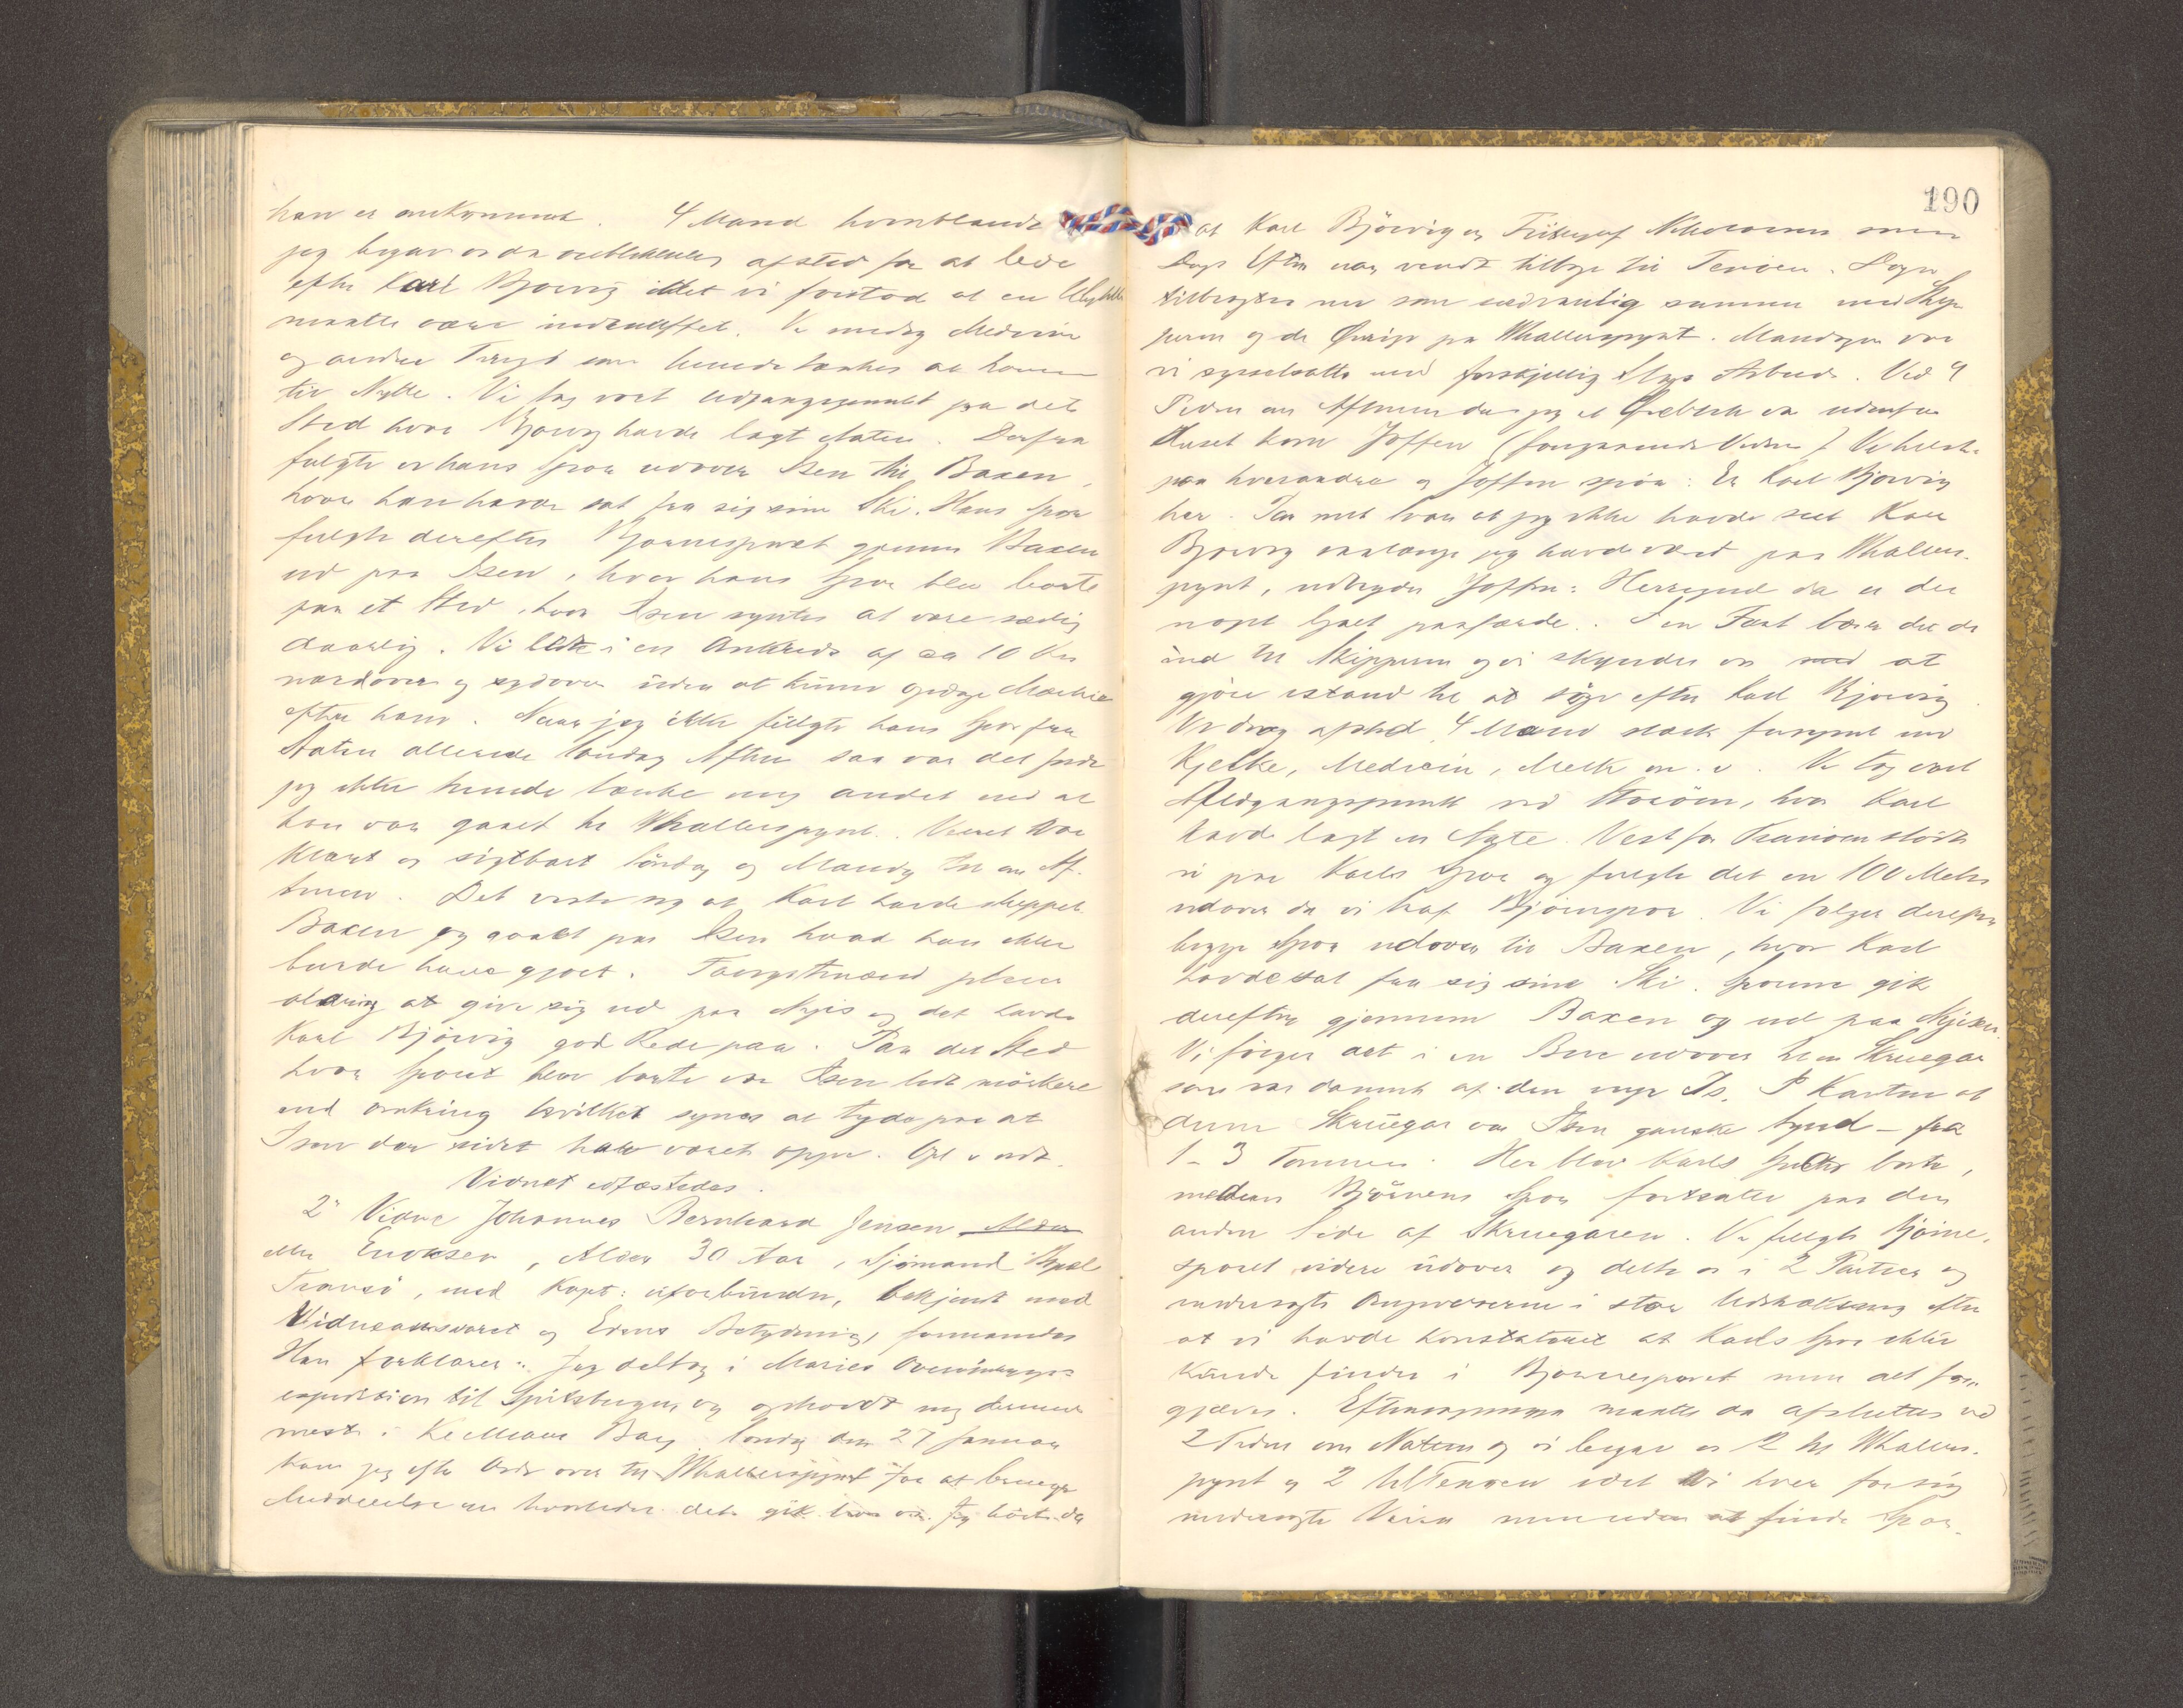 han er ankommet. 4 Mand hvoriblandt
jeg begav os da øieblikkelig afsted for at lede
efter Karl Bjørvig idet vi forstod at en Ulykke
maatte være indtruffet. Vi medtog Medicin
og andre Ting som kunde tænkes at komme
til Nytte. Vi tog vort Udgangspunkt fra det
Sted hvor Bjørvig havde lagt Aaten. Derfra
fulgte vi hans Spor udover Isen til Baxen,
hvor han havde sat fra sig sine Ski. Hans Spor
fulgte derefter Bjørnesporet gjennem Baxen
ud paa Isen, hvor hans Spor blev borte
paa et Sted, hvor Isen syntes at være særlig
daarlig. Vi ledte i en Omkreds af ca 10 Km
nordover og sydover uden at kunne opdage Mærke
efter ham. Naar jeg ikke fulgte hans Spor fra
Aaten allerede Søndag Aften saa var det fordi
jeg ikke kunde tænke mig andet end at
han var gaaet til Whallerspynt. Veiret var
klart og sigtbart Søndag og Mandag til om Af-
tenen. Det viste sig at Karl havde sluppet
Baxen og gaaet paa Isen hvad han ikke
burde have gjort. Fangstmænd pleier
aldrig at give sig ud paa Nyis og det havde
Karl Bjørvig god Rede paa. Paa det Sted
hvor Sporet blev borte var Isen lidt mörkere
end omkring hvilket synes at tyde paa at
Isen der sidst har været oppe. Opl. v.
Vidnet edfæstedes.
2' Vidne Johannes Bernhard Jensen Alder
eller Enoksen, Alder 30 Aar, Sjømand
Tromsö, med Kapt: uforbunden, bekjent med
Vidneansvaret og Edens Betydning, formanedes
Han forklarer: Jeg deltog i Maries Overvintrings-
expedition til Spitsbergen og opholdt mig
mest i Bay. Søndag den 27 Januar
kom jeg efter Ordre over til Whallerspynt for at bringe
Meddelelse om hvorledes det gik hos os. Jeg hörte da
190
at Karl Björvig og Nikolaisen samme
Dags Aften var vendt tilbage til Tenöen. Dagen
tilbragtes nu som sædvanlig sammen med Skip-
peren og de Øvrige paa Whallerspynt. Mandagen var
vi sysselsatte med forskjellig Slags Arbeide. Ved 9
Tiden om Aftenen da jeg et Øieblik var udenfor
Huset kom Joffen (foregaaende Vidne). Vi hilste
paa hverandre og Joffen spör: Er Karl Bjørvig
her. Paa mit Svar at jeg ikke havde seet Karl
Bjørvig saalænge jeg havde været paa Whallers-
pynt, udbryder Joffen: Herregud da er der
noget galt paafærde. I en Fart bærer det da
ind til Skipperen og vi skynder os med at
gjöre istand til at söge efter Karl Bjørvig.
Vi drog afsted 4 Mand stærk forsynet med
Kjelke, Medicin, Melk m. v. Vi tog vort
Udgangspunkt ved Storöen, hvor Karl
havde lagt en Aate. Vest for stödte
vi paa Karls Spor og fulgte det en 100 Meter
udover da vi traf Björnspor. Vi fölger derefter
begge Spor udover til Baxen, hvor Karl
havde sat fra sig sine Ski. Sporene gik
derefter gjennem Baxen og ud paa Nyisen.
Vi fölger det i en Bue udover til en Skruegar
som var dannet af den nye Is. I Kanten af
denne Skruegar var Isen ganske tynd – fra
1–3 Tommer. Her blev Karls Spor borte,
medens Björnens Spor fortsatte paa den
anden Side af Skruegaren. Vi fulgte Björne-
sporet videre udover og delte os i 2 Partier og
undersøgte Omgivelserne i stor Udstrækning efter
at vi havde konstateret at Karls Spor ikke
kunde findes i Bjørnesporet men alt for-
gjæves. Eftersøgningen maatte da afsluttes ved
2 Tiden om Natten og vi begav os 2 til Whallers-
pynt og 2 til Tenöen idet vi hver for sig
undersøgte Veien men uden at finde Spor.